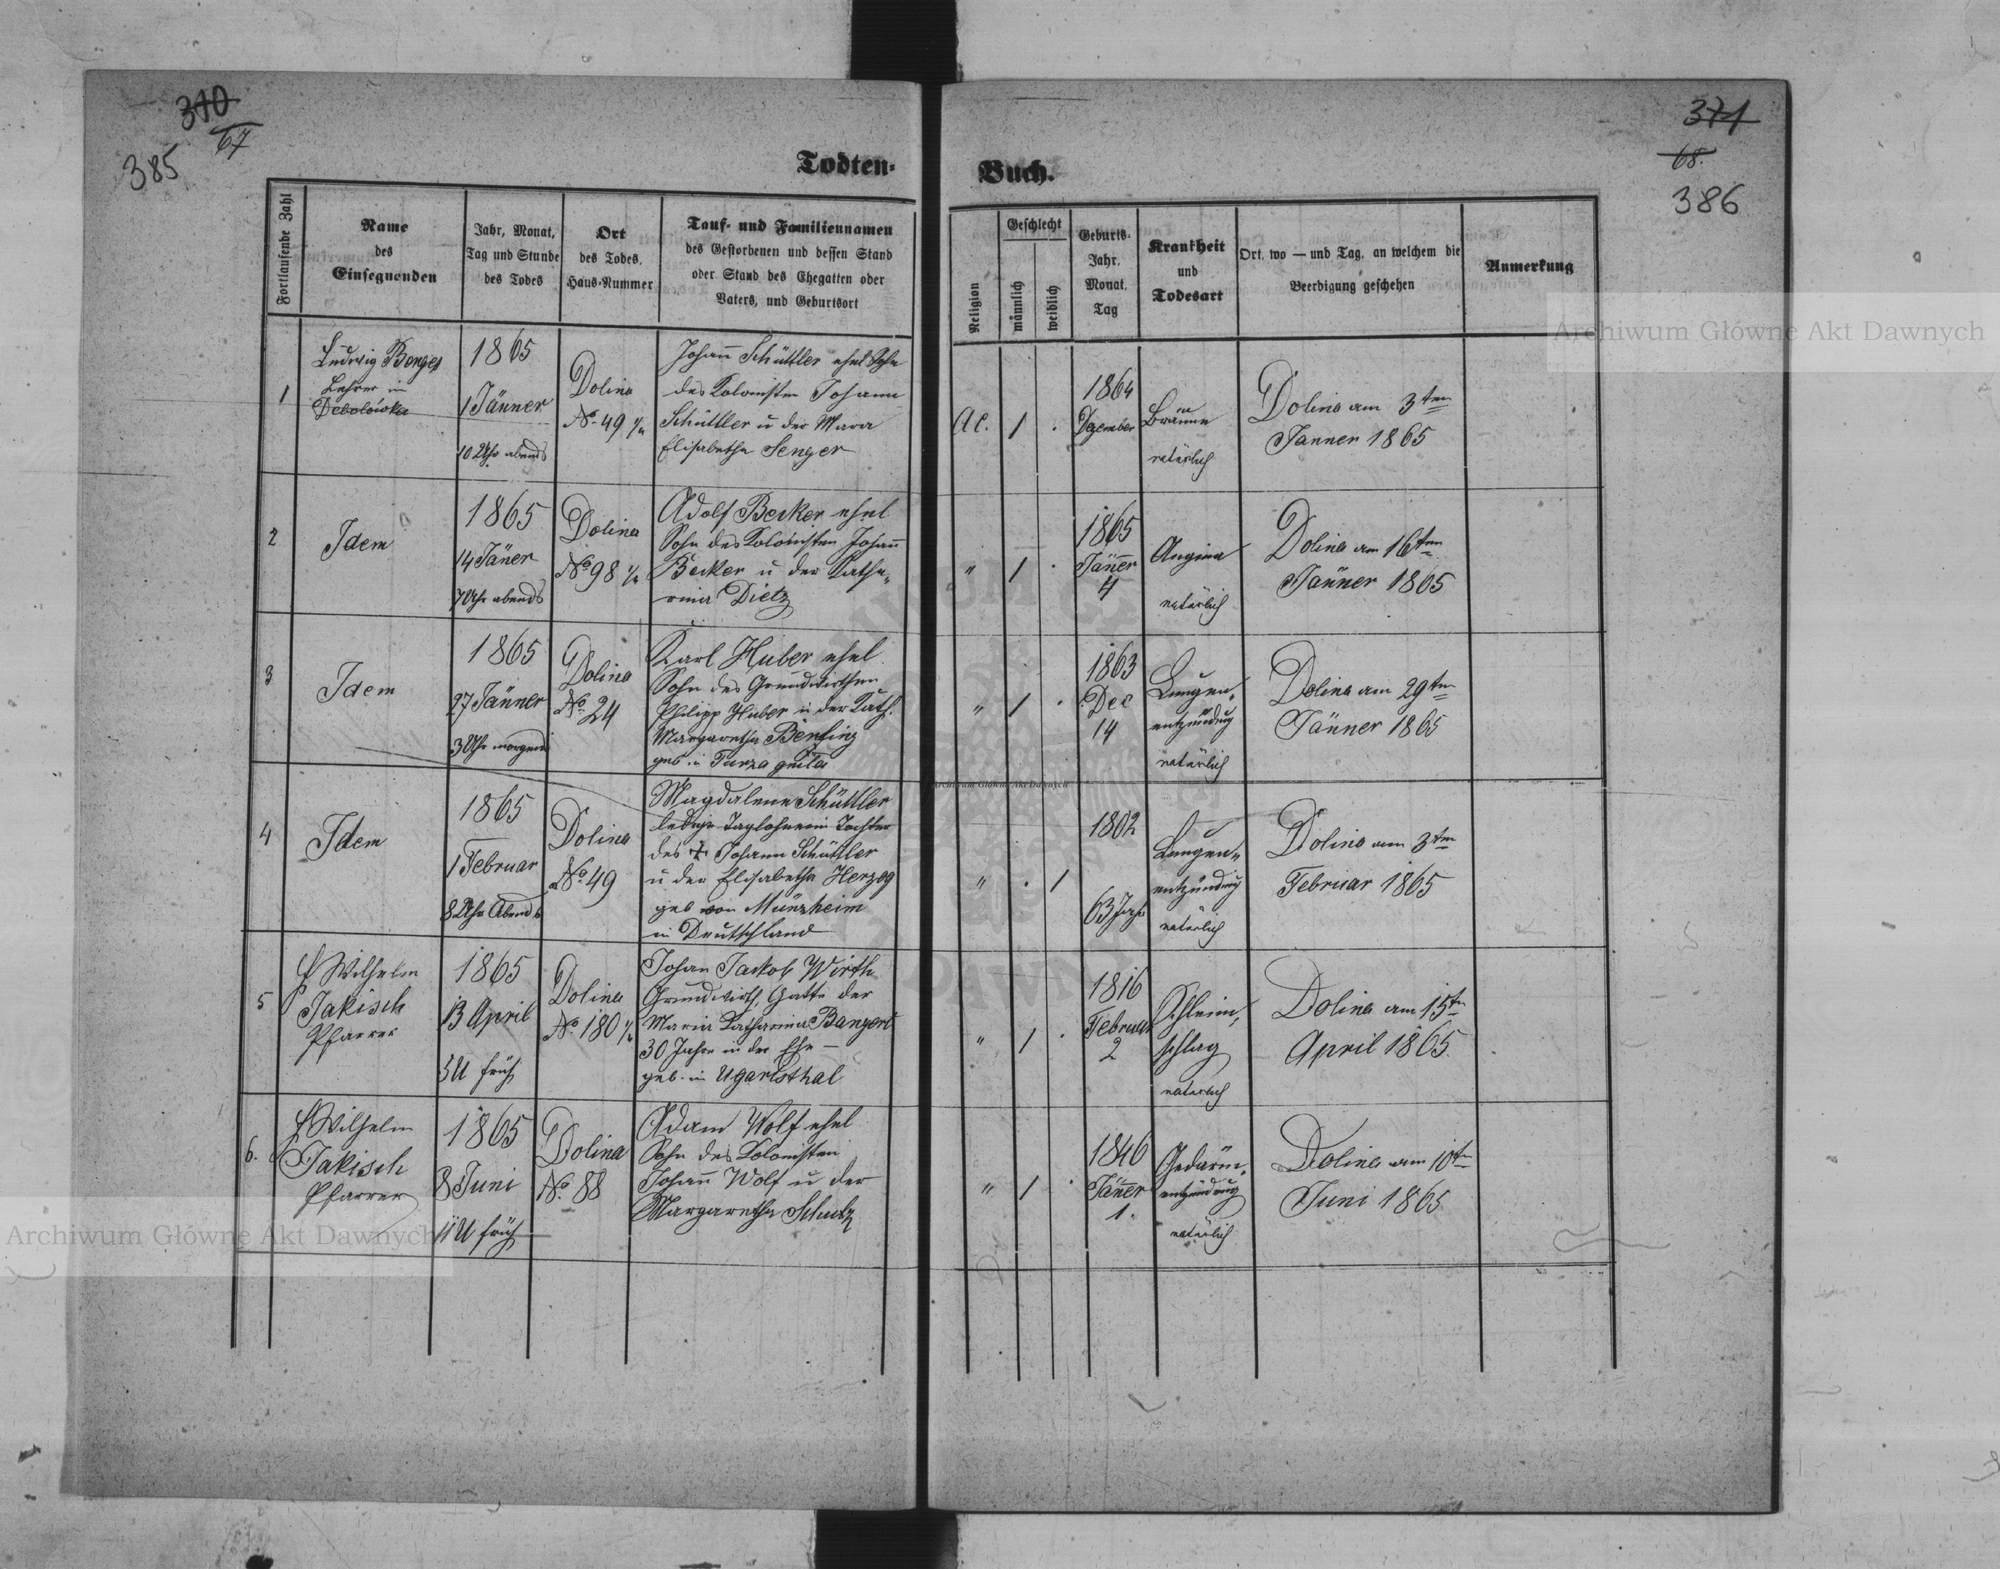 370
67
385
Todten-
Fortlaufende Zahl
Name
des
Einsegnenden
Jahr, Monat,
Tag und Stunde
des Todes
Ort
des Todes,
Haus-Nummer
Tauf- und Familiennamen
des Gestorbenen und dessen Stand
oder Stand des Ehegatten oder
Vaters, und Geburtsort
1
Ludwig Bonges
Lehrer in
Debolówka
1865
1 Jänner
10 Uhr abends
Dolina
No. 49
Johann Schüttler ehel Sohn
des Kolonisten Johann
Schüttler u der Mara
Elisabetha Senger
2
Idem
1865
14 Jäner
7 Uhr abends
Dolina
No 98
Adolf Becker ehel
Sohn des Kolonisten Johann
Becker u der Katha-
rina Dietz
3
Idem
1865
27 Jänner
3 Uhr morgens
Dolina
No. 24
Karl Huber ehel
Sohn des Grundwirthen
Philipp Huber u der Kath.
Margaretha
geb. in Turza
4
Idem
1865
1 Februar
8 Uhr Abends
Dolina
No. 49
Magdalena Schüttler
ledige Taglohnerin Tochter
des + Johann Schüttler
u der Elisabetha Herzog
geb von Münzheim
in Deutschland
5
Wilhelm
Jakisch
Pfarrer
1865
13 April
5 U früh
Dolina
No. 180
Johan Jackob Wirth
Grundwirth, Gatte der
Maria Katharina Bangert
30 Jahre in der Ehe –
geb. in Ugartsthal
6.
Wilhelm
Jakisch
Pfarrer
1865
8 Juni
11 U früh
Dolina
No. 88
Adam Wolf ehel
Sohn des Kolonisten
Johann Wolf u der
Margaretha Schutz
371
68.
386
Buch.
Religion
Geschlecht
männlich
weiblich
Geburts-
Jahr,
Monat,
Tag
Krankheit
und
Todesart
Ort, wo — und Tag, an welchem die
Beerdigung geschehen
Anmerkung
AC.
1
1864
Dezember
Bräune
natürlich
Dolina am 3ten
Janner 1865
"
1
1865
Jänner
4
Angina
natürlich
Dolina am 16ten
Jänner 1865
"
1
1863
Dec
14
Lungen-
entzündug
natürlich
Dolina am 29ten
Jänner 1865
"
1
1802
63 Jahr
Lungen-
entzündug
natürlich
Dolina am 3ten
Februar 1865
"
1
1816
Februar
2
Schleim-
schlag
natürlich
Dolina am 15ten
April 1865
"
1
1846
Jänner
1.
Gedärm-
entzündug
natürlich
Dolina am 10ten
Juni 1865
Archiwum Główne Akt Dawnych
Archiwum Główne Akt Dawnych
Archiwum Główne Akt Dawnych